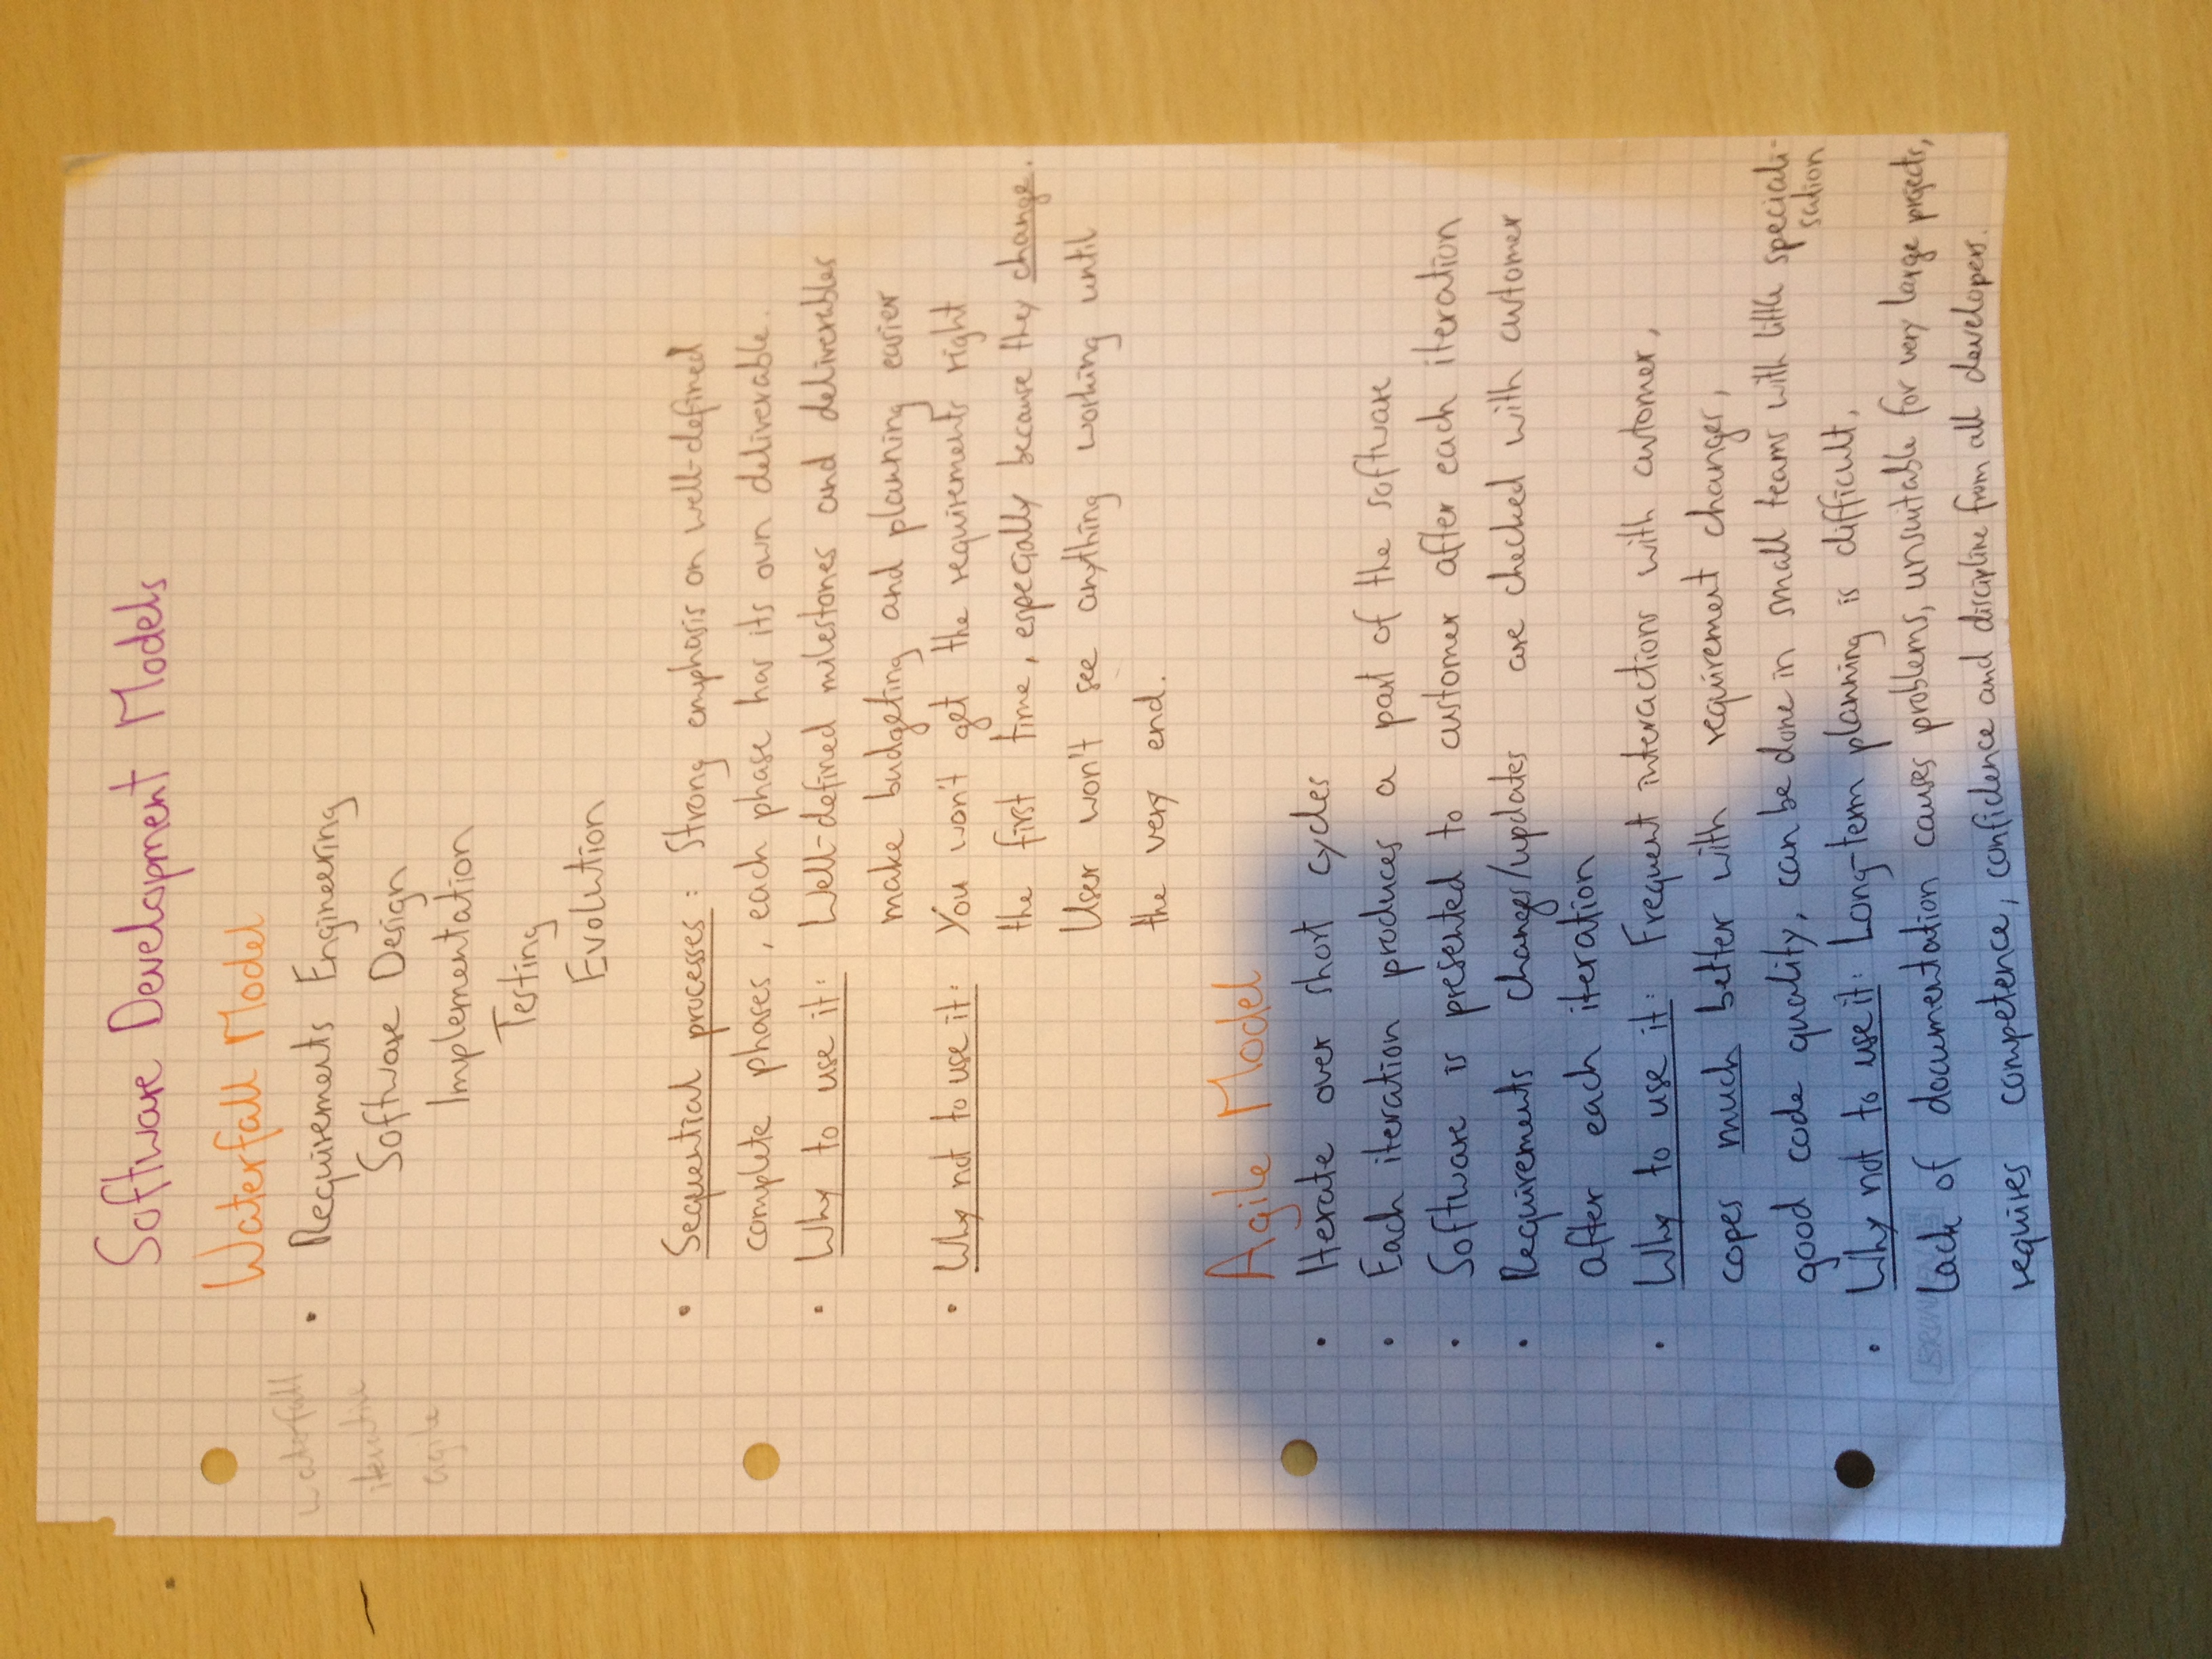 Software Development Models
Waterfall Model
waterfall
iterative
agile
• Requirements Engineering
Software Design
Implementation
Testing
Evolution
• Sequential processes: Strong emphasis on well-defined
complete phases, each phase has its own deliverable.
• Why to use it: Well-defined milestones and deliverables
make budgeting and planning easier
• Why not to use it: You won't get the requirements right
the first time, especially because they change.
User won't see anything working until
the very end.
Agile Model
• Iterate over short cycles
• Each iteration produces a part of the software
• Software is presented to customer after each iteration
• Requirements changes/updates are checked with customer
after each iteration
• Why to use it: Frequent interactions with customer,
copes much better with requirement changes,
good code quality, can be done in small teams with little speciali-
sation
• Why not to use it: Long-term planning is difficult,
lack of documentation causes problems, unsuitable for very large projects,
requires competence, confidence and discipline from all developers.